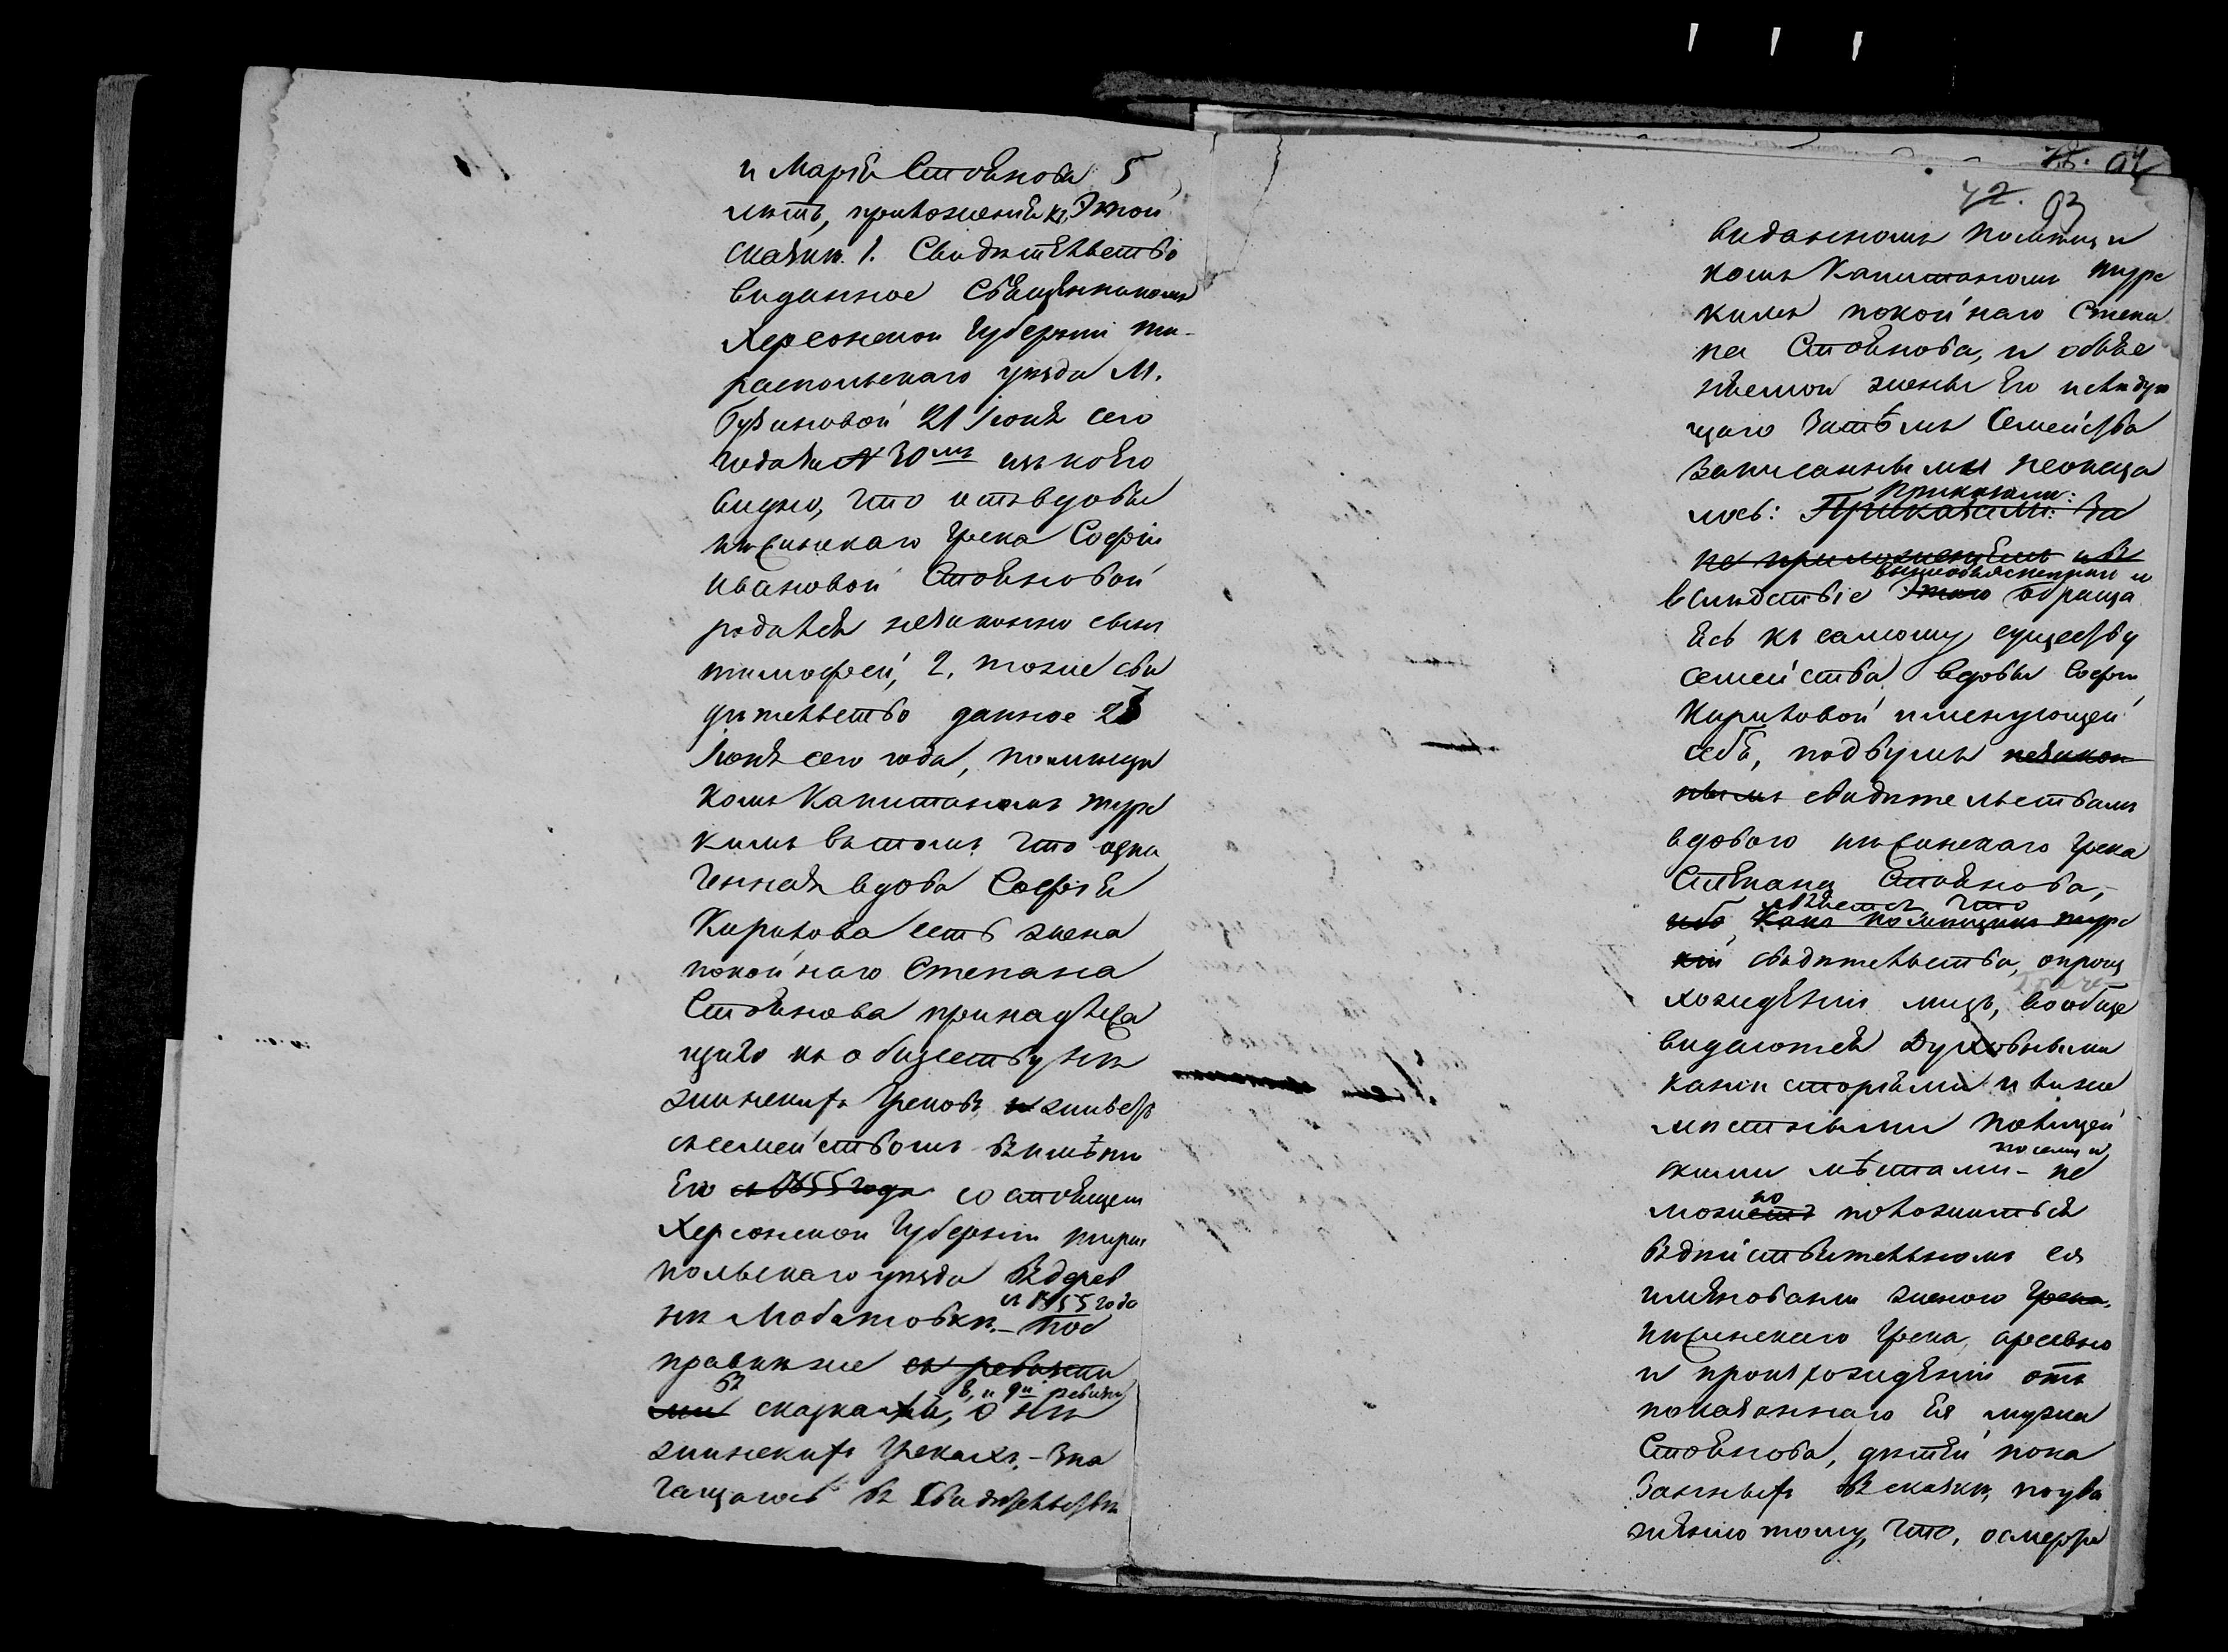 и Марія Стоянова 5
лѣтъ, приложеніи къ этой
сказки 1. Свидѣтельство
виданное Священникомъ
Херсонской Губерніи ти-
распольскаго уѣзда М.
21 Іюня сего
года за № 30мъ изъ коего
видно, что отъ вдовы
нѣжинскаго Грека Софіи
Ивановой Стояновой
родился незаконно сынъ
тимофей, 2, тоже сви
дѣтельство данное 23
Іюня сего года, помѣщи
комъ Капитаномъ
въ томъ что озна
ченная вдова Софія
Кирилова есть жена
покойнаго Степана
Стоянова принадлежа
щаго къ обществу нѣ
жинскихъ Грековъ, и живетъ
съ семействомъ въ имѣніи
Его съ 1855 года состоящем
Херсонской Губерніи тирас
польскаго уѣзда въ дерев
ни
съ 1855 года
правиж ше съ ревизски
въ
ми сказками, о нѣ
8, и 9й ревизіи
жинскихъ Грекахъ, - Зна
чащагось въ Свидѣтельствѣ
42. 93
виданномъ помѣщи
комъ Капитаномъ
покойнаго Степа
на Стоянова, и объяв
ляемой жены Его
щаго затѣмъ Семейства
записанными неоказа
лось: Приказали: За
Приказали:
не приложеніемъ
вслѣдствіе этого обраща
ясь къ самому существу
семейства вдовы Софіи
Кириловой именующей
себя, по двумъ незакон
нымъ свидѣтельствамъ
вдовою нѣжинскаго Грека
Степана Стоянова,
что
ибо, Какъ помѣщикъ
кій свидѣтельства, о проис
хожденіи лицъ, вообще
видаются Духовными
консисторіями и ниже
мѣстными полицей
скими мѣстами - не
по сему и
можетъ положиться
но
въ дѣйствительномъ ея
именованіи женою Грека
нѣжинскаго Грека, а равно
и происхожденіи отъ
показаннаго Ея мужа
Стоянова, дѣтей пока
занныхъ въ сказки, по ува
женію тому, что, о смерти